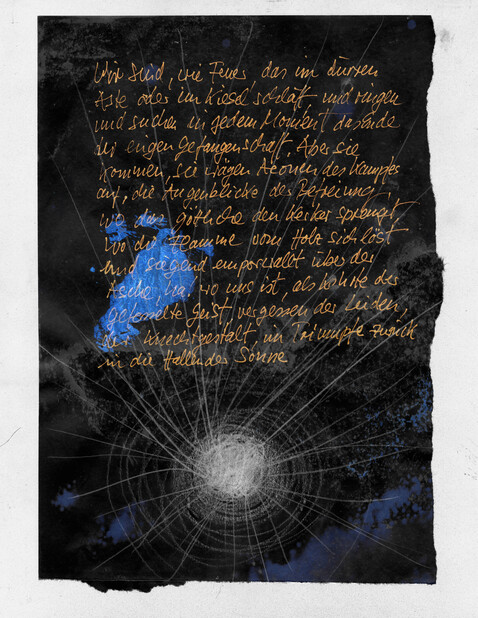 Wir sind, wie Feuer, das im dürren
Aste oder im Kiesel schläft, und ringen
und suchen in jedem Moment das Ende
der engen Gefangenschaft. Aber sie
kommen, sie wägen Aeonen des Kampfes
auf, die Augenblicke der Befreiung,
wo das göttliche den Kerker sprengt,
wo die Flamme vom Holz sich löst
und siegend emporwallt über der
Asche, ha! wo uns ist, als kehrte der
gefesselte Geist, vergessen der Leiden,
der Knechtsgestalt, im Triumphe zurück
in die Hallen der Sonne